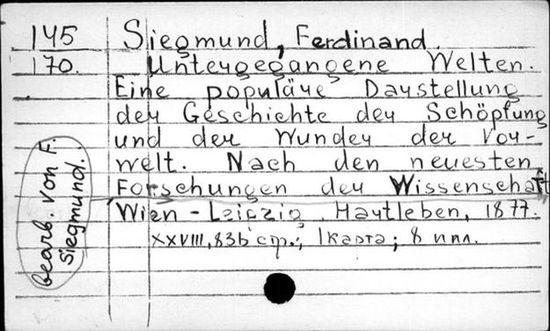 145 Siegmund, Ferdinand.
170. Untergegangene Welten.
Eine populäre Darstellung
der Geschichte der Schöpfung
und der Wunder der Vor-
welt. Nach den neuesten
Forschungen der Wissenschaft
Wien - Leipzig, Hartleben, 1877.
XXVIII, 836 стр.; 1 карта; 8 илл.
Bearb. von F.
Siegmund.